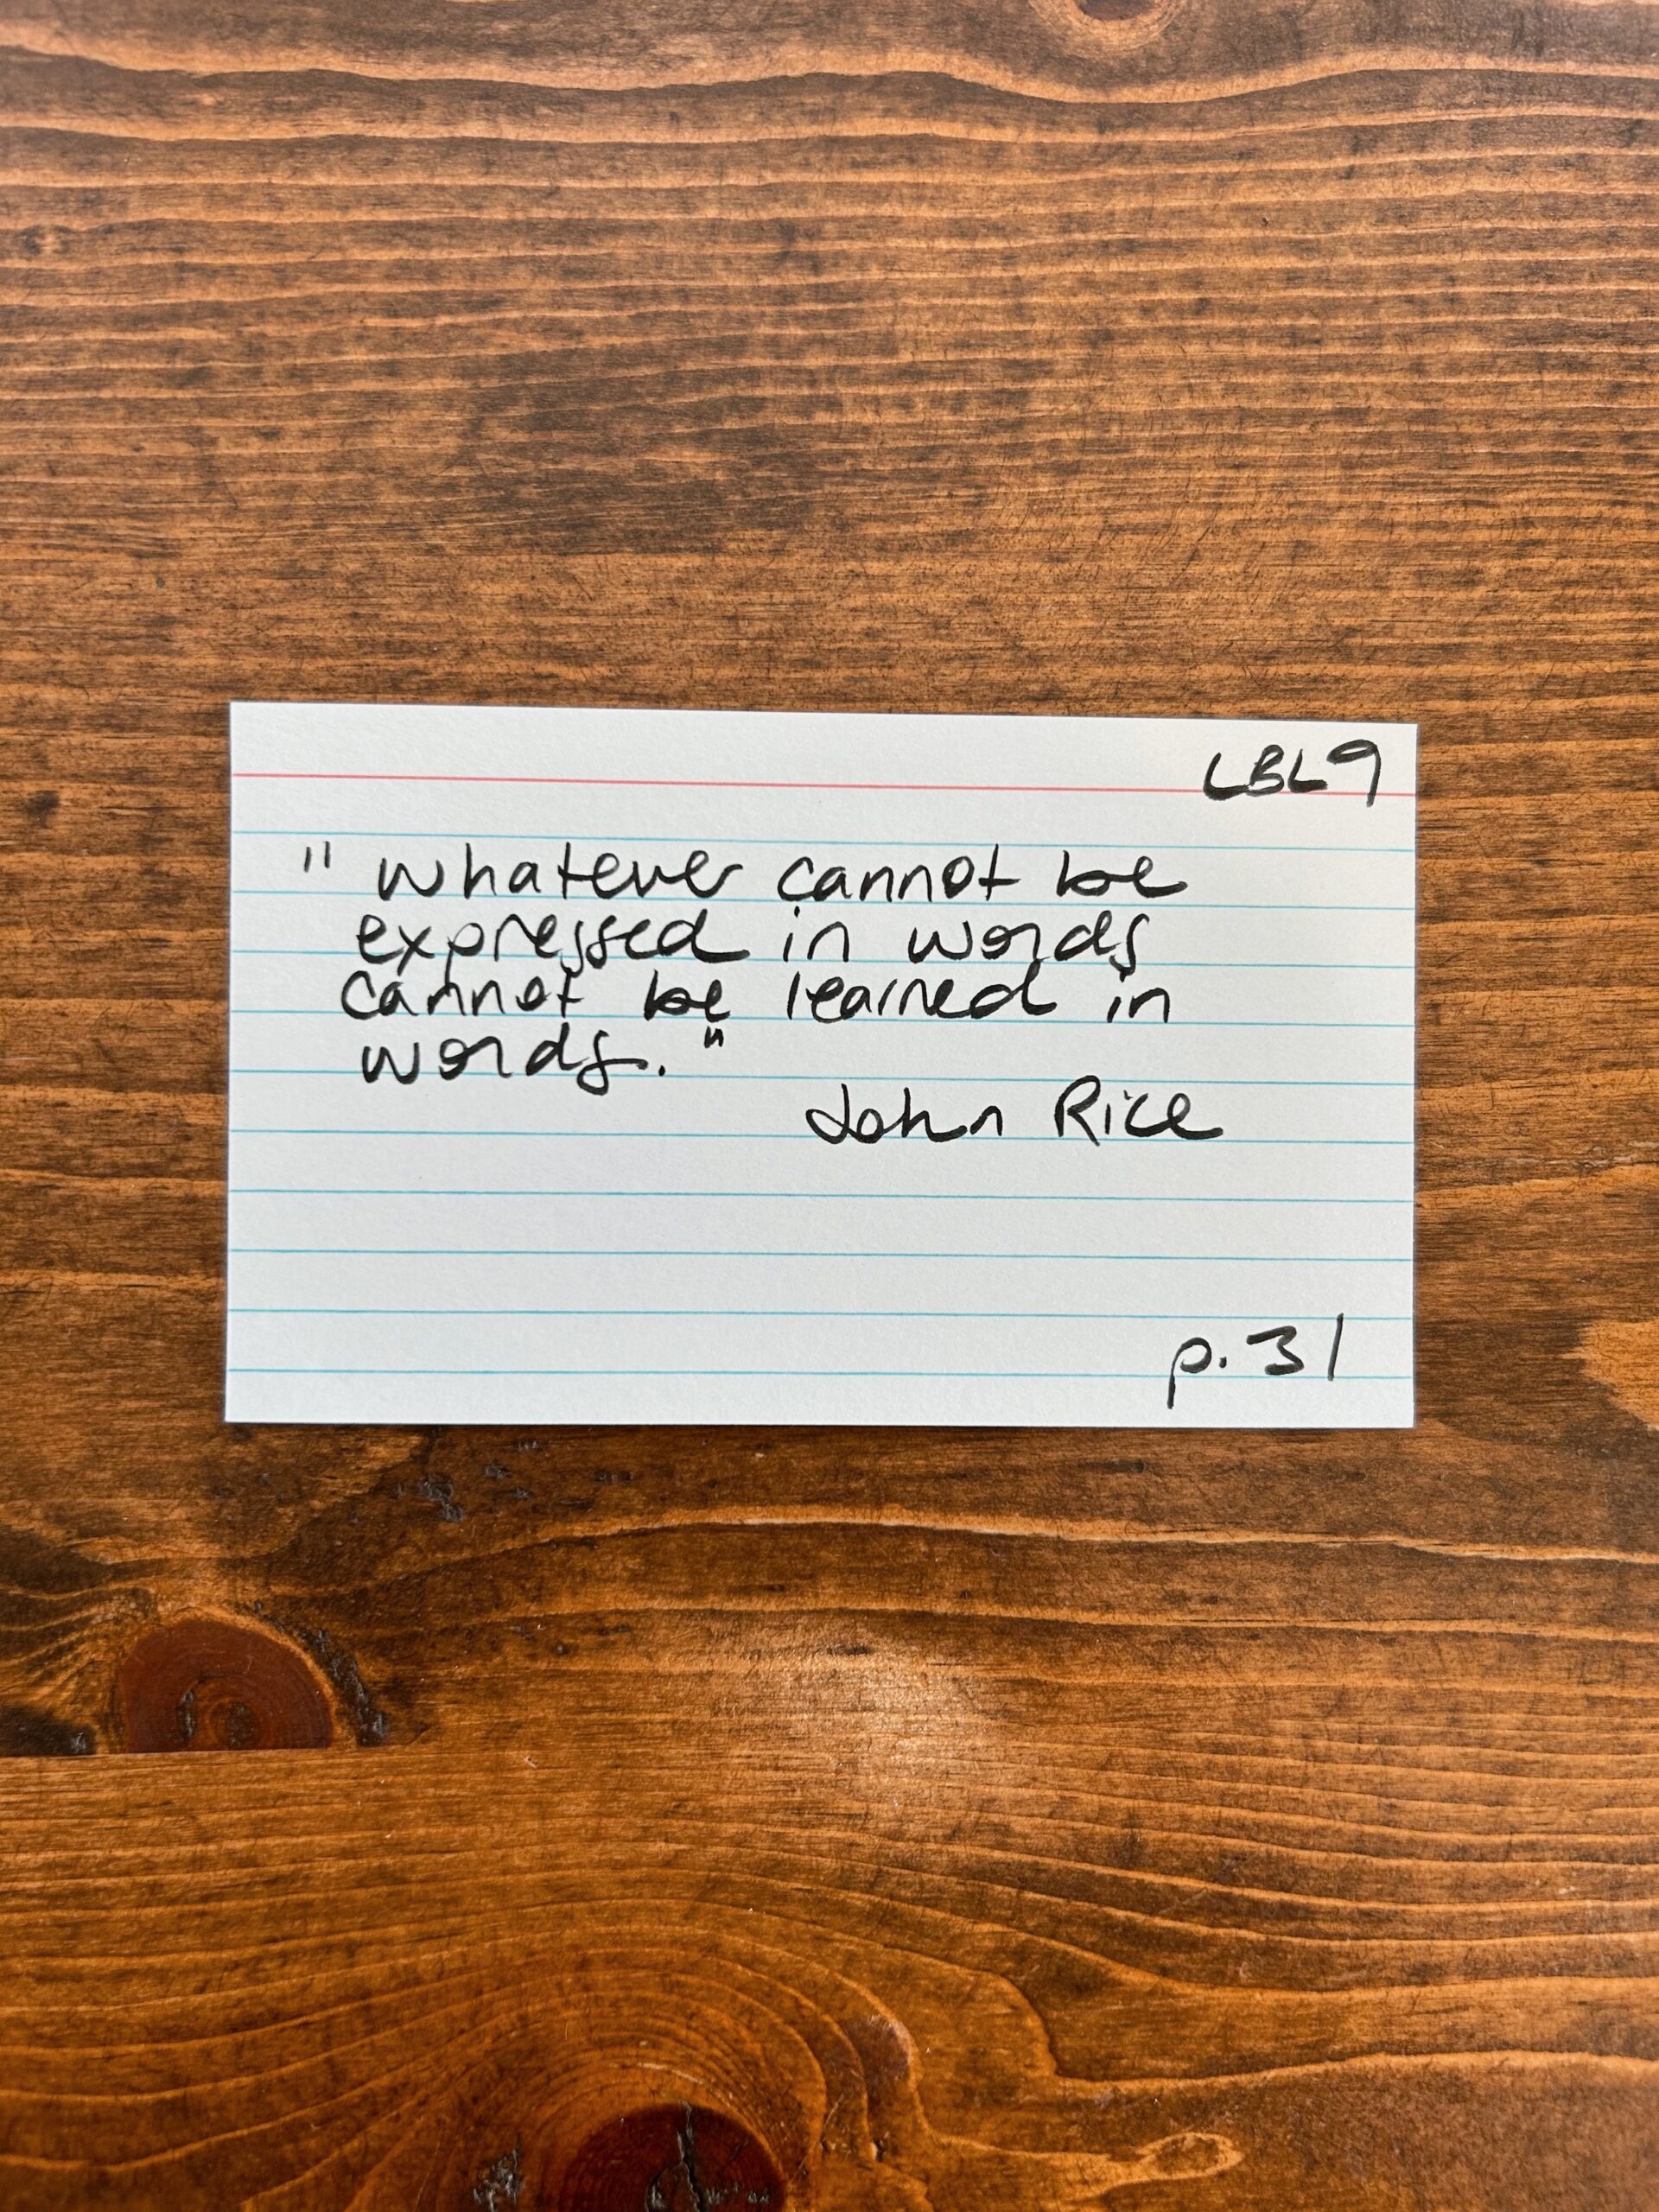 LBL9
" whatever cannot be
expressed in words
cannot be learned in
words."
John Rice
p. 31